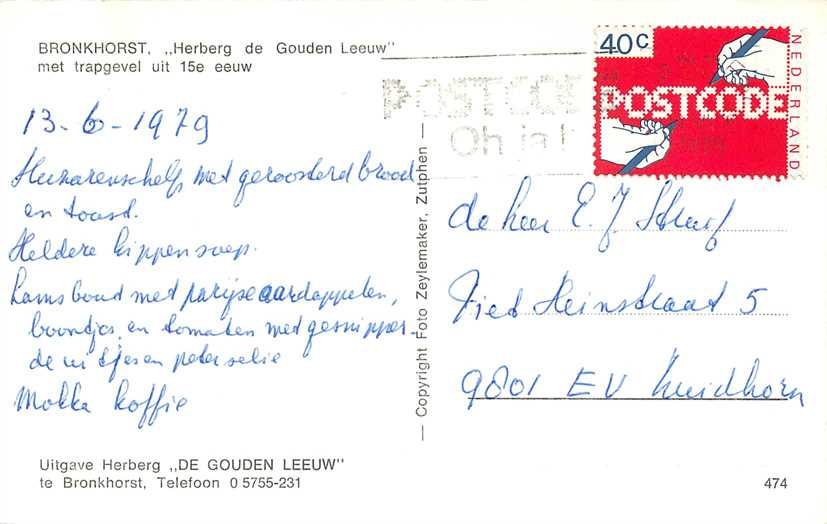 BRONKHORST, „Herberg de Gouden Leeuw"
met trapgevel uit 15e eeuw
13-6-1979
Huzarenschelp met geroosterd brood
en toast.
Heldere kippensoep.
Lamsboud met parijse aardappelen,
boontjes en tomaten met gesnipper-
de uitjes en peterselie
Mokka koffie
Uitgave Herberg „DE GOUDEN LEEUW"
te Bronkhorst, Telefoon 0 5755-231
— Copyright Foto Zeylemaker, Zutphen —
40c
POSTCODE
NEDERLAND
POSTCODE
Oh ja!
de heer E. J.
Piet Heinstraat 5
9801 EV Zuidhorn
474